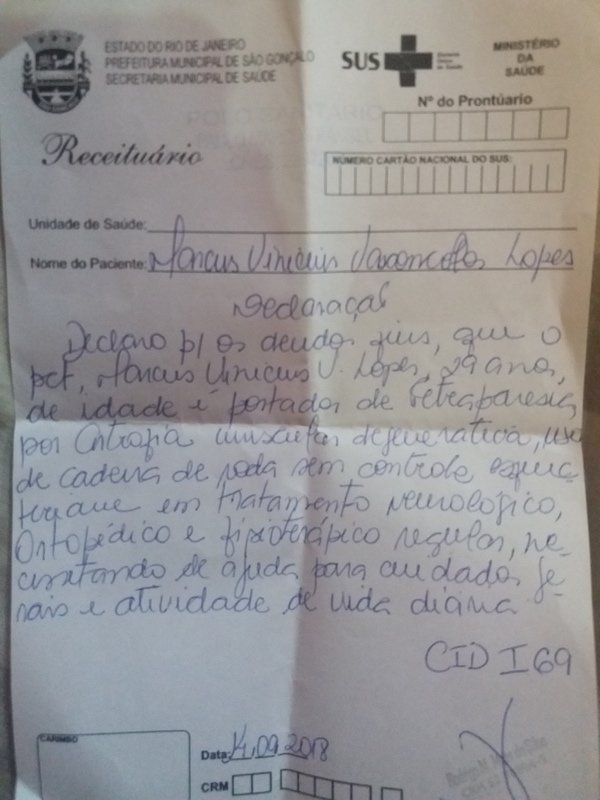 ESTADO DO RIO DE JANEIRO
PREFEITURA MUNICIPAL DE SÃO GONÇALO
SECRETARIA MUNICIPAL DE SAUDE
SUS
MINISTÉRIO
DA
SAÚDE
Nº do Prontúario
Receituário
NUMERO CARTÃO NACIONAL DO SUS:
Unidade de Saúde:
Nome do Paciente: Marcus Vinicius Vasconcelos Lopes
Declaração
Declaro p/ os devidos fins, que o
pct, Marcus Vinicius V. Lopes, 29 anos,
de idade é portador de tetraparesia
por Atrofia muscular degenerativa, uso
de cadeira de roda sem controle
em tratamento neurológico,
Ortopédico e fisioterápico regular, ne-
cessitando de ajuda para cuidados ge-
rais e atividade de vida diária
CID I 69
CARIMBO
Data: 14.09.2018
CRM